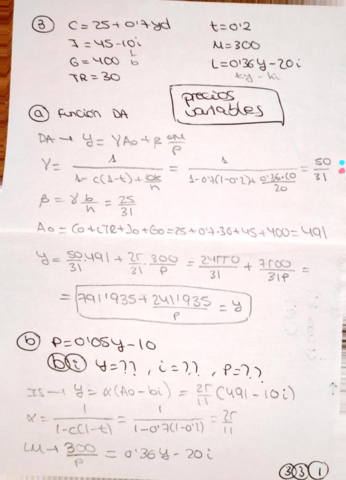 ③ C=25+0'7yd t=0'2
I=45-10i M=300
G=400 L=0'36y-20i
TR=30 ky-hi
precios variables
ⓐ Función DA
DA → y = γA0+β M/P
γ = 1/(1-c(1-t)+bk/h) = 1/(1-0'7(1-0'2)+0'36·10/20) = 50/31
β = γ b/h = 25/31
A0 = C0+cTR+I0+G0=25+0'7·30+45+400=491
y = 50/31·491 + 25/31·300/P = 24550/31 + 7500/31P =
= 791'1935+241'1935/P = y
ⓑ P=0'05y-10
b i y=??, i=??, P=??
IS → y = α(A0-bi) = 25/11(491-10i)
α = 1/(1-c(1-t)) = 1/(1-0'7(1-0'2)) = 25/11
LM → 300/P = 0'36y-20i
③③①